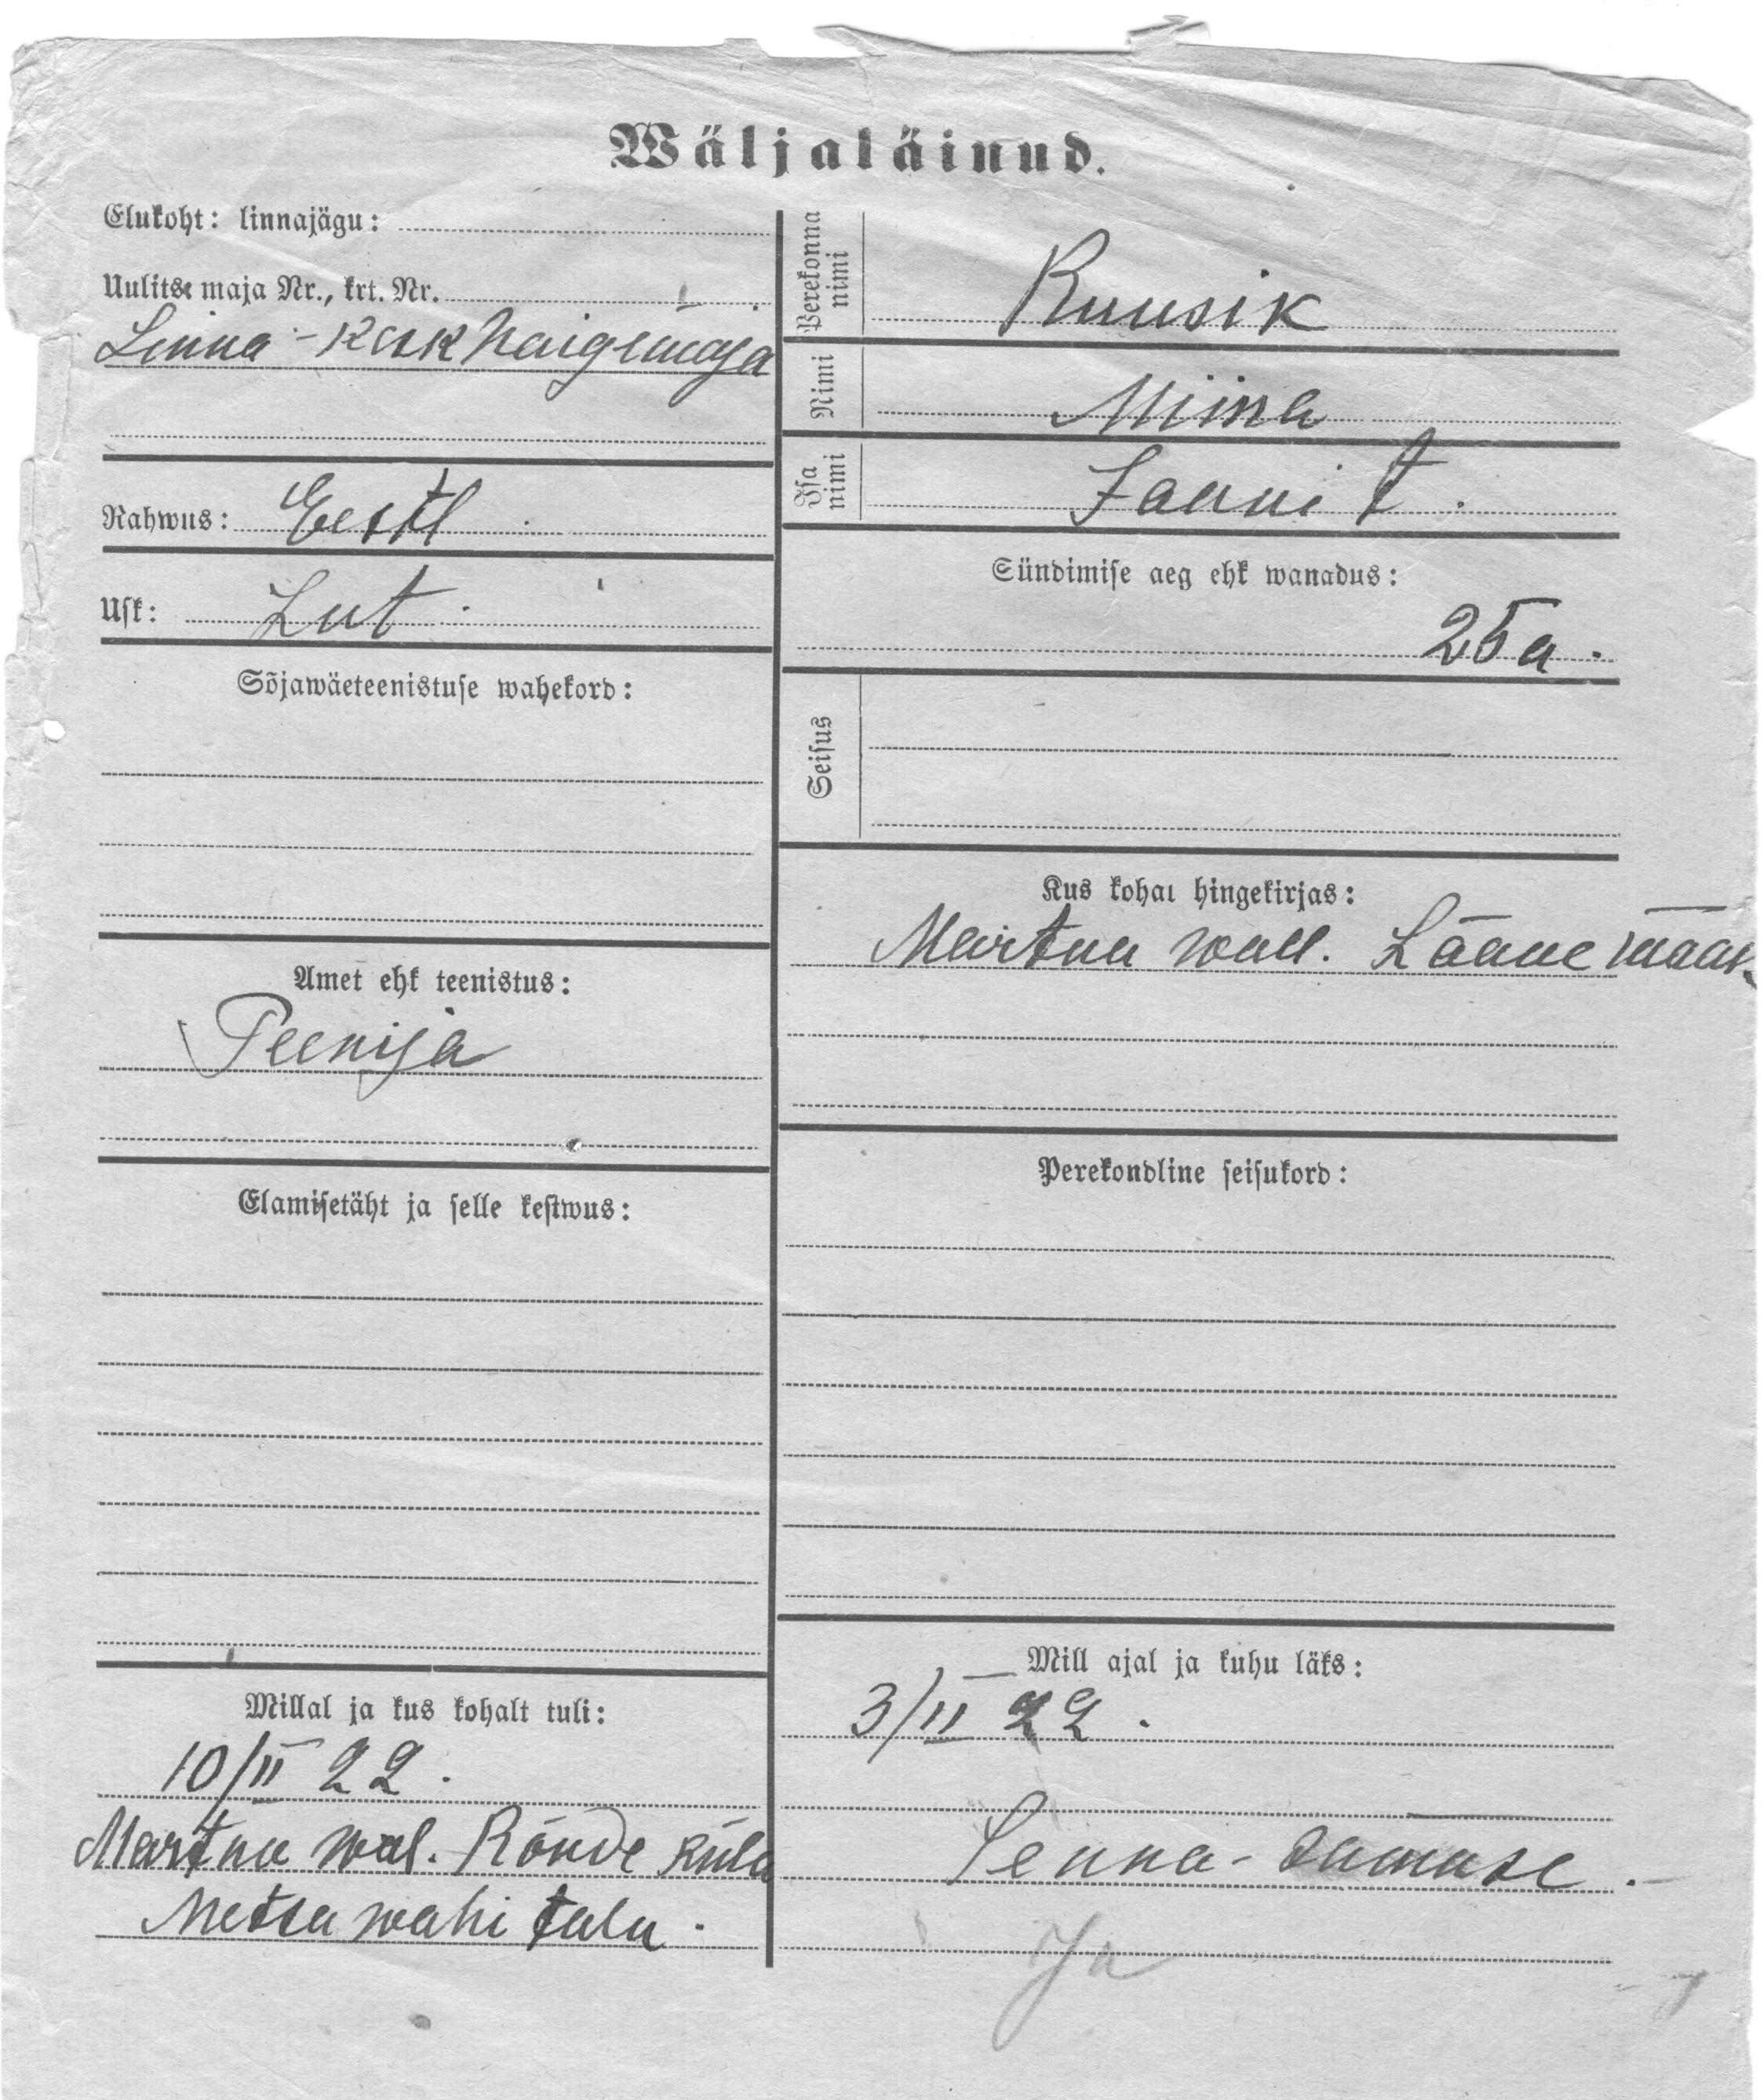 Wäljaläinud.
Elukoht: linnajägu:
Uulits, maja Nr., krt. Nr.
Linna-Keskhaigemaja
Rahwus: Eestl.
Usk: Lut.
Sõjawäeteenistuse wahekord:
Amet ehk teenistus:
Teenija
Elamisetäht ja selle kestwus:
Millal ja kus kohalt tuli:
10/II 22.
Martna wal. Rõude küla
Metsawahi talu.
Perekonna nimi
Ruusik
Nimi
Miina
Isa nimi
Jaani t.
Sündimise aeg ehk wanadus:
25 a.
Seisus
Kus kohal hingekirjas:
Martna wall. Läänemaa
Perekondline seisukord:
Mill ajal ja kuhu läks:
3/II 22.
Senna-samase.